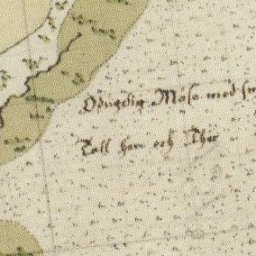 Odugelig Måsa med sm
Tall som och Thir